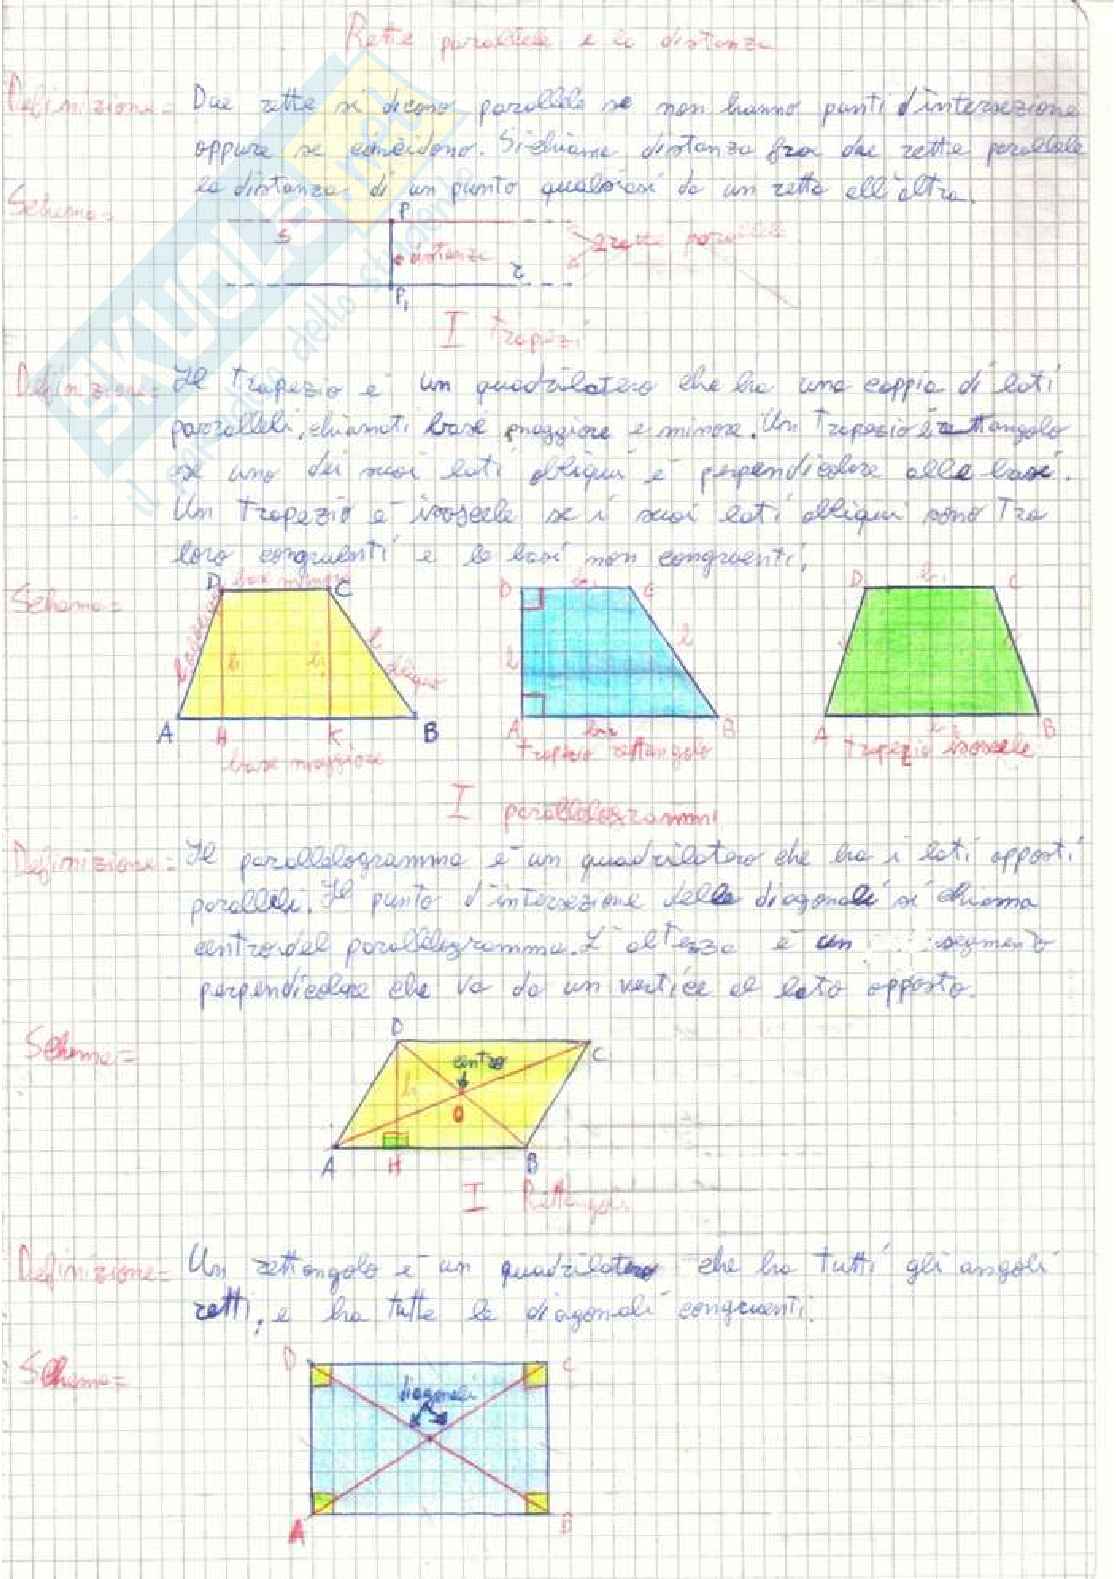 Rette parallele e la distanza
Definizione= Due rette si dicono parallele se non hanno punti d'intersezione
oppure se coincidono. Si chiama distanza fra due rette parallele
la distanza di un punto qualsiasi da un retta all'altra.
Schema=
S P
distanza
2 rette parallele
r
P₁
SKUOLA.net
il paradiso dello studente
I trapezi
Definizione= Il trapezio è un quadrilatero che ha una coppia di lati
paralleli, chiamati base maggiore e minore. Un trapezio è rettangolo
se uno dei suoi lati obliqui è perpendicolare alle basi.
Un trapezio è isoscele se i suoi lati obliqui sono tra
loro congruenti e le basi non congruenti.
Schema=
D base minore C
l. obliquo
h h
l. obliquo
A H K B
base maggiore
D C
l l
A b B
trapezio rettangolo
D b C
A B
trapezio isoscele
I parallelogrammi
Definizione= Il parallelogramma è un quadrilatero che ha i lati opposti
paralleli. Il punto d'intersezione delle diagonali si chiama
centro del parallelogramma. L'altezza è un segmento
perpendicolare che va da un vertice al lato opposto.
Schema=
D C
centro
h
O
A H B
I Rettangoli
Definizione= Un rettangolo è un quadrilatero che ha tutti gli angoli
retti, e ha tutte le diagonali congruenti.
Schema=
D C
diagonali
A B